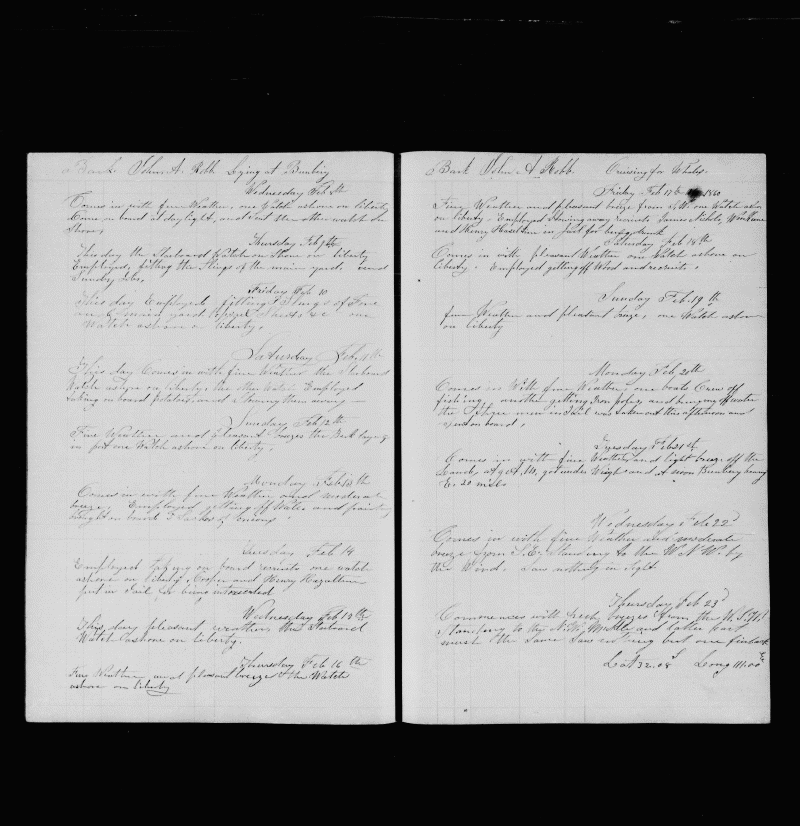 Bark John A. Robb Lying at Bunbury
Wednesday Feb 8th
Comes in with fine Weather, one Watch ashore on liberty
Come on board at daylight, and sent the other watch on
Shore,
Thursday Feb 9th
This day the Starboard Watch on Shore on liberty
Employed, fitting the Slings of the main yard and
Sundry Jobs,
Friday Feb 10
This day Employed fitting Slings of Fore
and yard topsail Sheets &c one
Watch ashore on liberty.
Saturday Feb 11th
This day Comes in with fine Weather the Starboard
Watch ashore on liberty, the Watch Employed
taking on board potatoes and Stowing them away
Sunday Feb 12th
Fine Weather and pleasant breezes the Bark lying
in port one Watch ashore on liberty.
Monday Feb 13th
Comes in with fine Weather and moderate
breeze, Employed getting off Water and painting
brought on board 3 Casks of onions
Tuesday Feb 14
Employed taking on board recruits one watch
ashore on liberty, Cooper and Henry Hazeltine
put in Jail for being intoxicated
Wednesday Feb 15th
This day pleasant weather the Starboard
Watch ashore on liberty.
Thursday Feb 16th
Fine Weather and pleasant breeze the Watch
ashore on liberty
Bark John A. Robb. Cruising for Whales.
Friday Feb 17th 1860
Fine Weather and pleasant breeze from S.W. one Watch ashore
on liberty. Employed Stowing away recruits, James Nichols, Wm
and Henry Hazeltine in Jail for being drunk
Saturday Feb 18th
Comes in with pleasant Weather one Watch ashore on
liberty. Employed getting off Wood and recruits.
Sunday Feb. 19th
fine Weather and pleasant breeze, one Watch ashore
on liberty
Monday Feb 20th
Comes in With fine Weather, one boats Crew off
fishing, another getting Iron poles, and bringing off water
the three men in Jail was taken out this afternoon and
sent on board.
Tuesday Feb 21st
Comes in with fine Weather, and light breeze off the
Land, at 9 A.M. got under Weigh and at noon Bunbury being
E 20 miles
Wednesday Feb 22d
Comes in with fine Weather and moderate
breeze from S.E. Standing to the W.N.W. by
the Wind. Saw nothing in Sight.
Thursday Feb 23d
Commences with fresh breezes from the W.S.W.
Standing to the Middle and latter part
much the Same Saw nothing but one finback
Lat 32.08 S Long 111.00 E